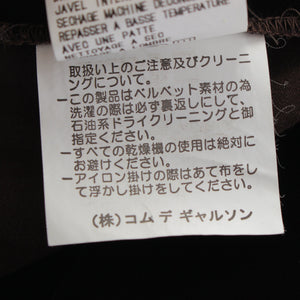 JAVEL INTERDIT
SECHAGE MACHINE DECONS
REPASSER A BASSE TEMPERATURE
AVEC UNE PATTE
NETTOYAGE A SEC
取扱い上のご注意及びクリーニ
ングについて。
ーこの製品はベルベット素材の為
洗濯の際は必ず裏返しにして、
石油系ドライクリーニングと御
指定ください。
ーすべての乾燥機の使用は絶対に
お避けください。
ーアイロン掛けの際はあて布をし
て浮かし掛けをしてください。
(株)コム デ ギャルソン